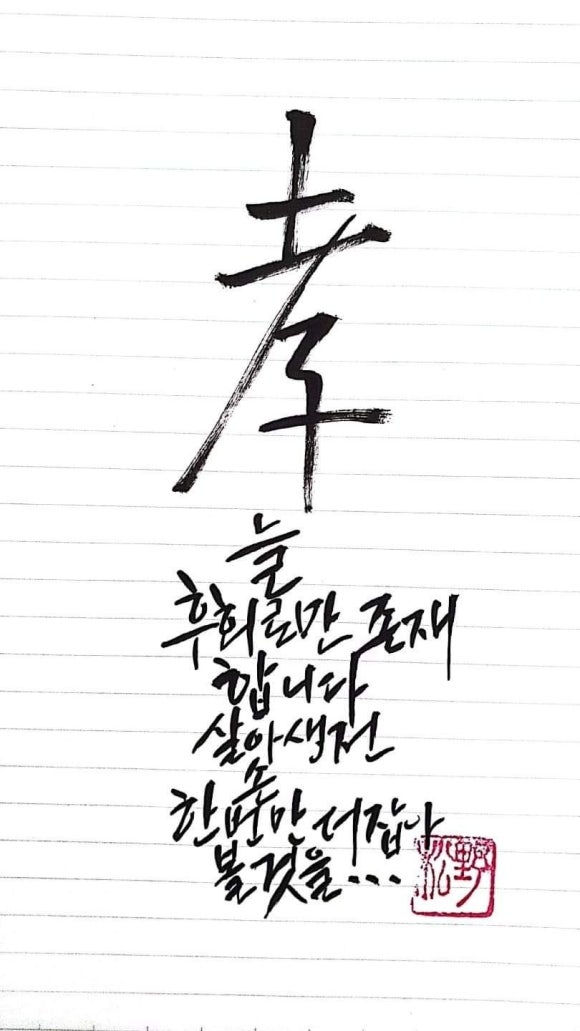 孝
늘
후회로만 존재
합니다
살아생전
손
한번만 더 잡아
볼것을...
松野